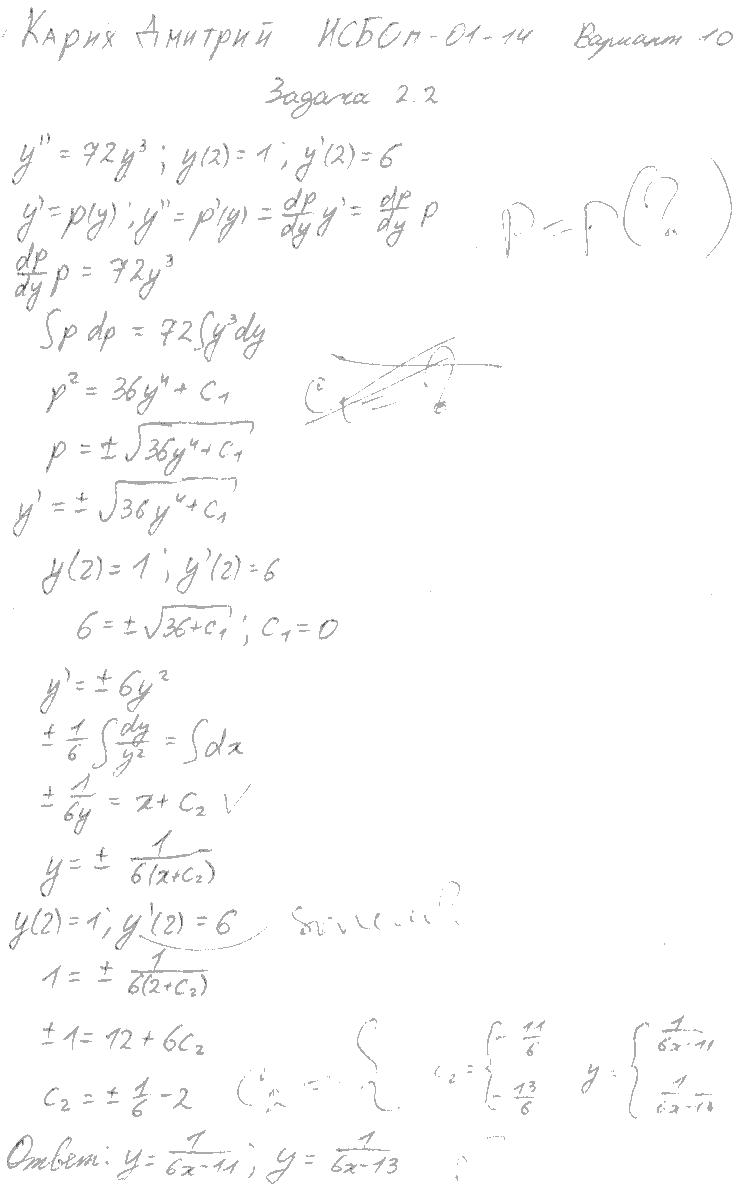 Карих Дмитрий ИСБОп-01-14 Вариант 10
Задача 2.2
y'' = 72y³ ; y(2)=1 ; y'(2)=6
y'=p(y) ; y''=p'(y) = dp/dy y' = dp/dy p
p=p(?)
dp/dy p = 72y³
∫p dp = 72∫y³dy
p² = 36y⁴ + C₁
p = ±√(36y⁴+C₁)
y' = ±√(36y⁴+C₁)
y(2)=1 ; y'(2)=6
6 = ±√(36+C₁) ; C₁=0
y' = ±6y²
± 1/6 ∫ dy/y² = ∫dx
± 1/6y = x + C₂ ✓
y = ± 1/6(x+C₂)
y(2)=1 ; y'(2)=6
1 = ± 1/6(2+C₂)
±1 = 12 + 6C₂
C₂ = ± 1/6 - 2 C₂ = { C₂ = { - 11/6 - 13/6 y = { 1/6x-11 1/6x-13
Ответ: y = 1/6x-11 ; y = 1/6x-13 ?